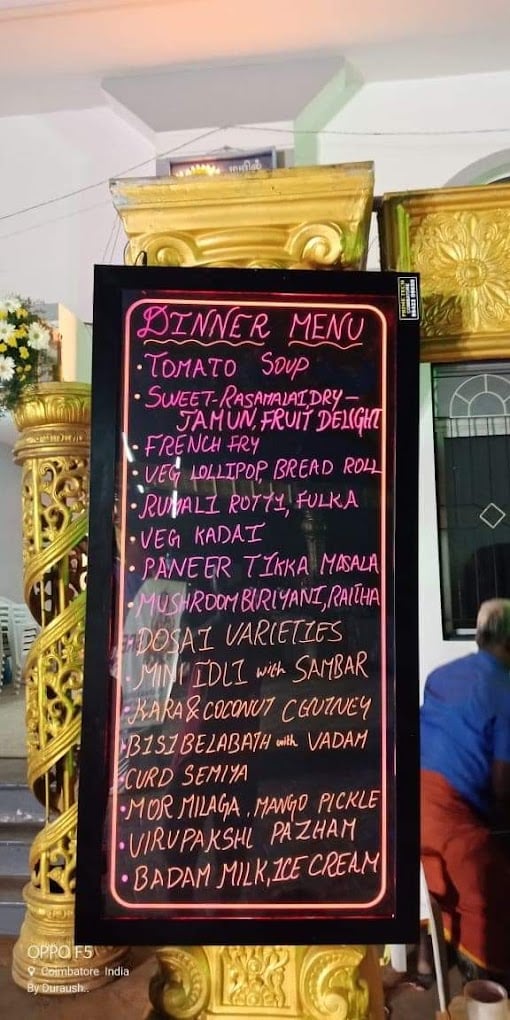 DINNER MENU
• TOMATO SOUP
• SWEET-RASAMALAI DRY-
JAMUN, FRUIT DELIGHT
• FRENCH FRY
• VEG LOLLIPOP, BREAD ROLL
• RUMALI ROTTI, FULKA
• VEG KADAI
• PANEER TIKKA MASALA
• MUSHROOM BIRIYANI, RAITHA
• DOSAI VARIETIES
• MINI IDLI with SAMBAR
• KARA & COCONUT CHUTNEY
• BISIBELABATH with VADAM
• CURD SEMIYA
• MOR MILAGA, MANGO PICKLE
• VIRUPAKSHI PAZHAM
• BADAM MILK, ICE CREAM
OPPO F5
Coimbatore India
By Duraush..